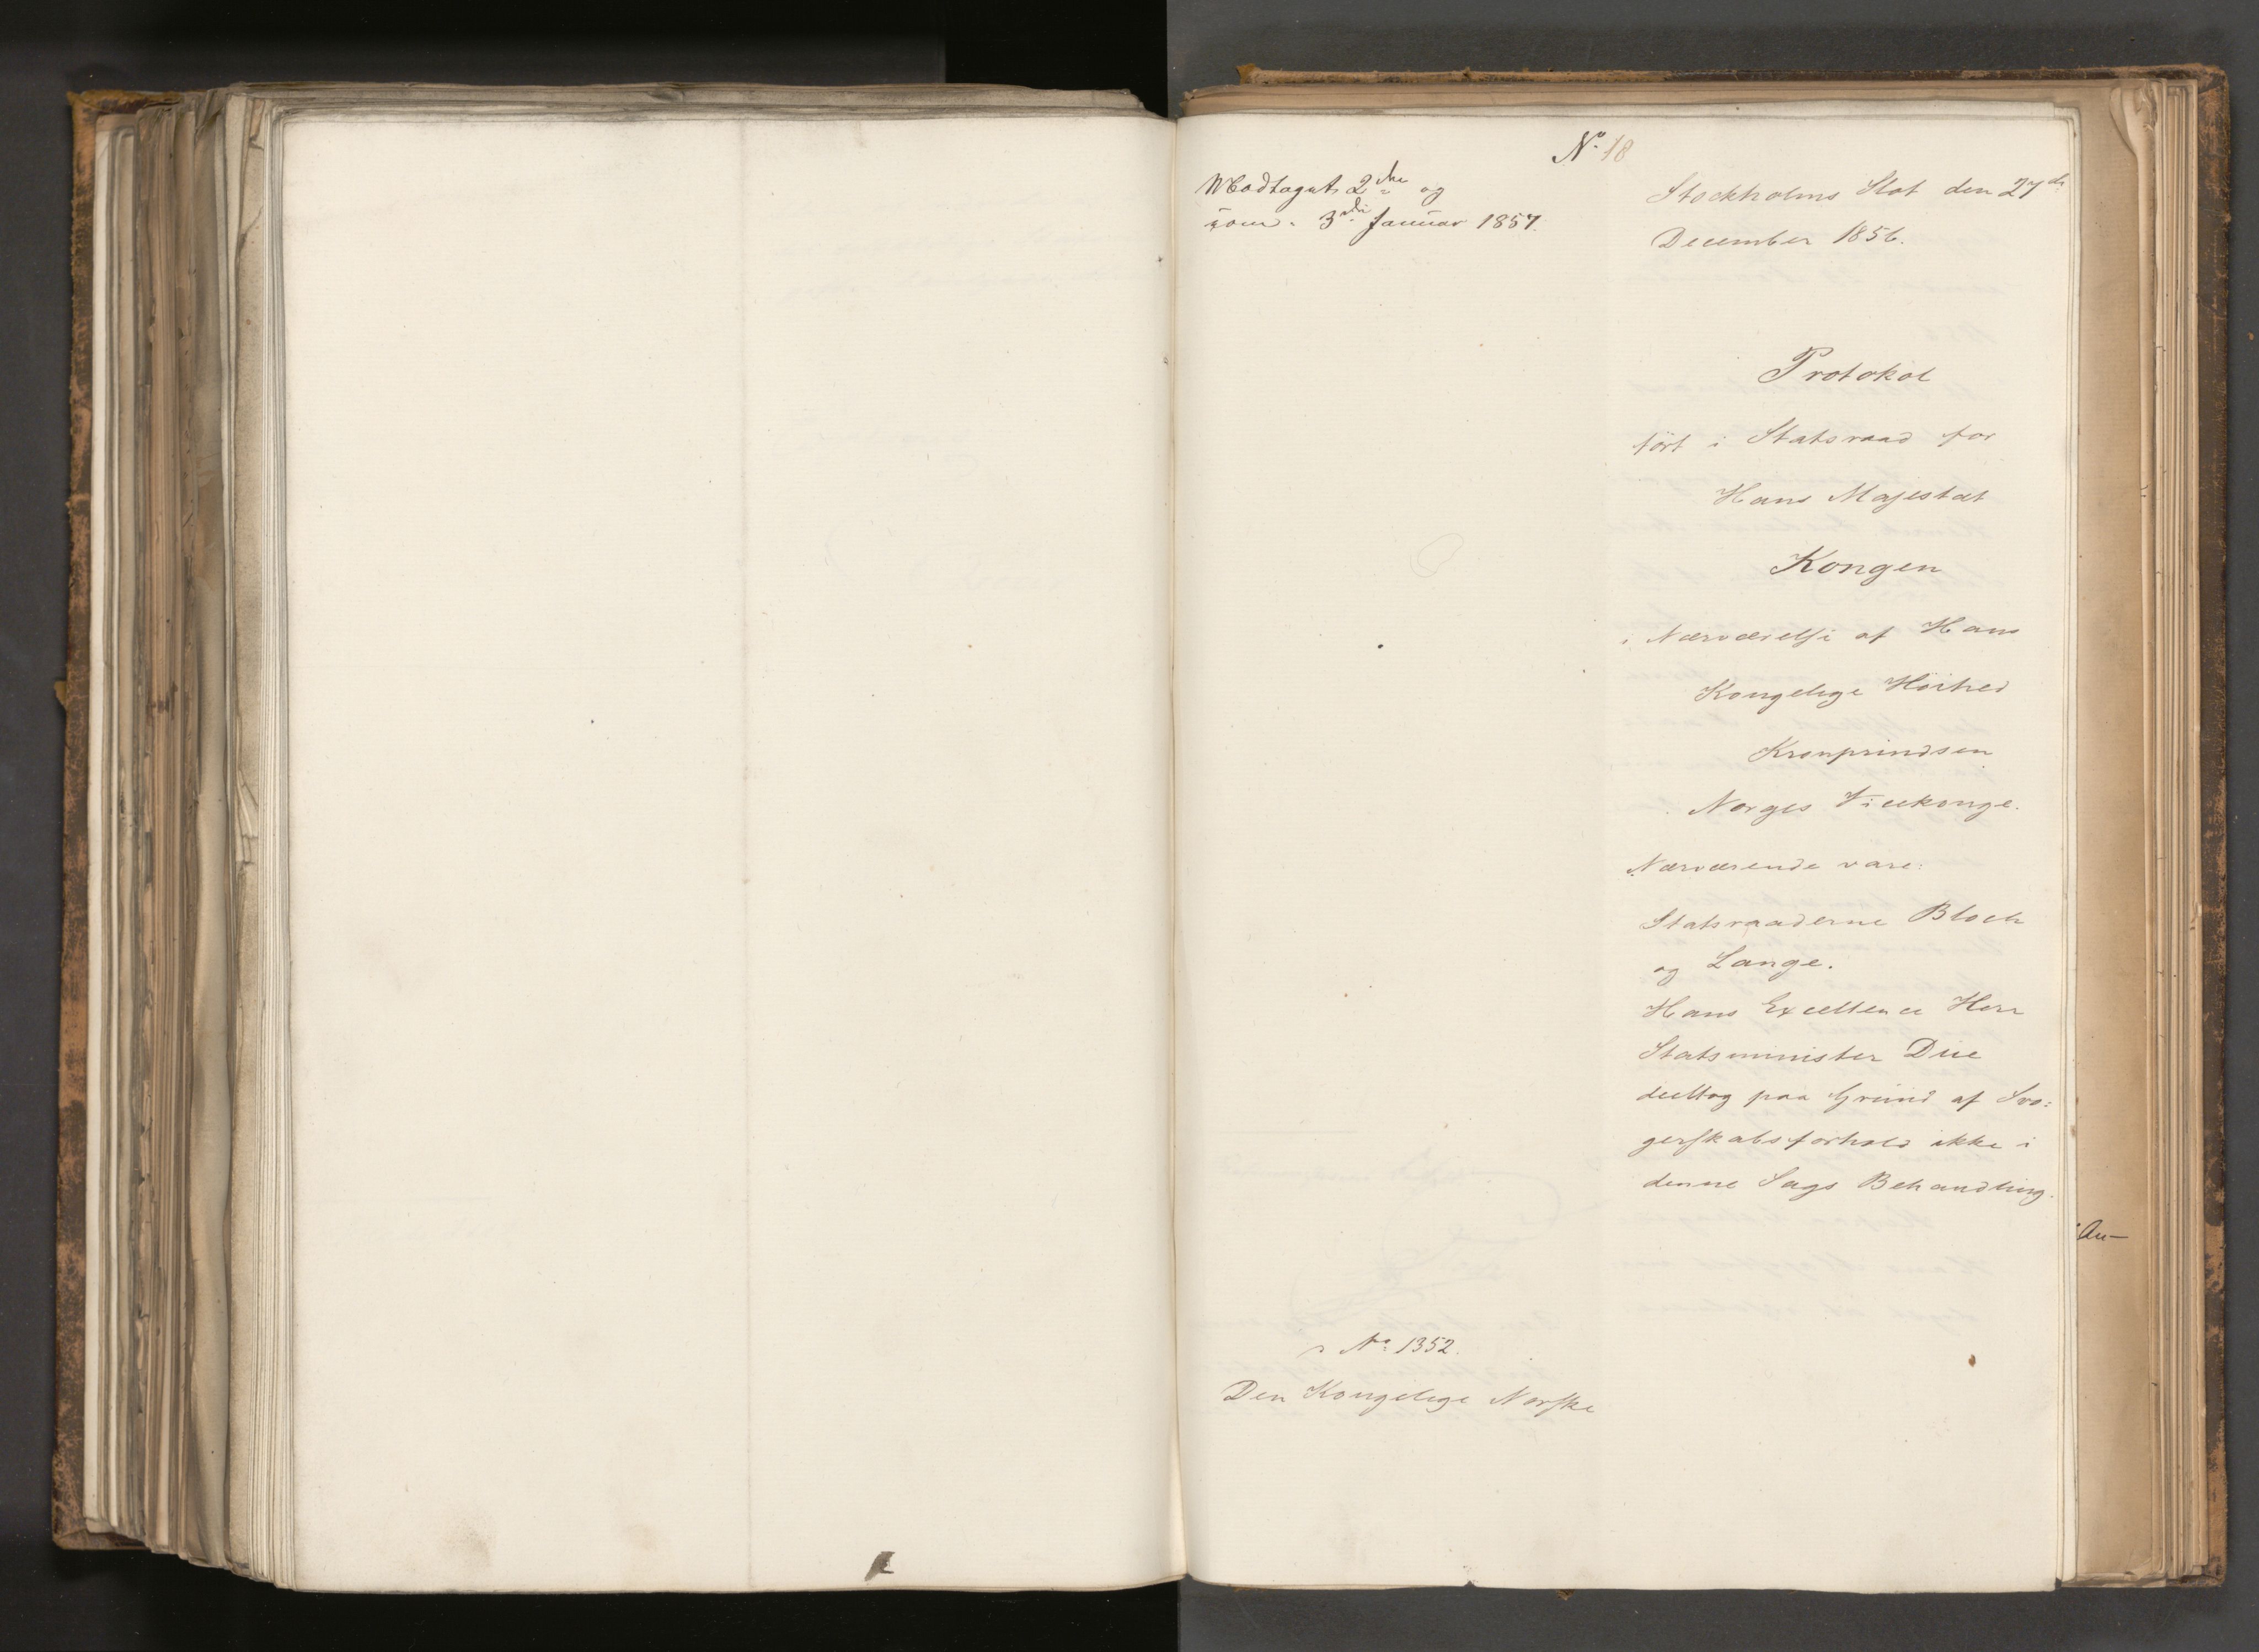 No 18
Modtaget 2den og
3die Januar 1857.
Stockholms Slot den 27de
December 1856.
Protokol
ført i Statsraad for
Hans Majestæt
Kongen
i Nærværelse af Hans
Kongelige Höihed
Kronprindsen
Norges Vicekonge.
Nærværende vare:
Statsraaderne Bloch
og Lange.
Hans Excellence Herr
Statsminister Due
deeltog paa Grund af Svo:
gerskabsforhold ikke i
denne Sags Behandling.
An-
No 1352.
Den Kongelige Norske